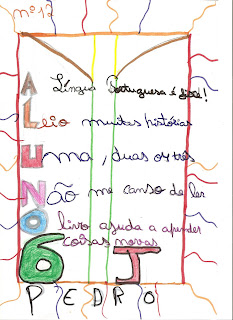 nº 12
A Língua Portuguesa é
Leio muitas histórias
Uma, duas ou três
Não me canso de ler
O livro ajuda a aprender
coisas novas
6 J
PEDRO